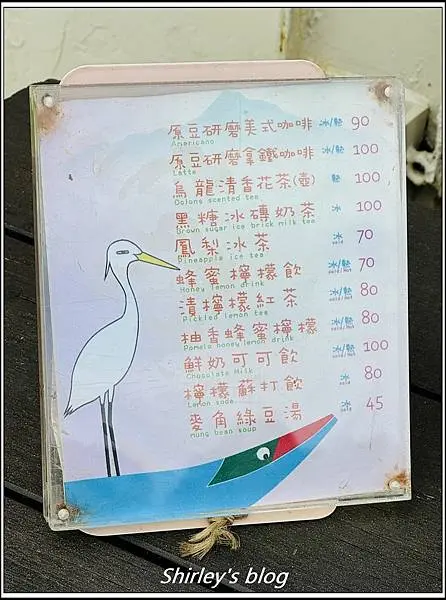 原豆研磨美式咖啡 冰/熱 90
Americano
原豆研磨拿鐵咖啡 冰/熱 100
Latte
烏龍清香花茶(壺) 熱 100
Oolong scented tea
黑糖冰磚奶茶 冰 100
Brown sugar ice brick milk tea
鳳梨冰茶 冰 70
Pineapple ice tea cold
蜂蜜檸檬飲 冰/熱 70
Honey lemon drink cold/Hot
漬檸檬紅茶 冰/熱 80
Pickled lemon tea cold/Hot
柚香蜂蜜檸檬 冰/熱 80
Pomelo honey lemon drink cold/Hot
鮮奶可可飲 冰/熱 100
Chocolate Milk cold/Hot
檸檬蘇打飲 冰 80
Lemon soda cold
麥角綠豆湯 冰 45
Mung bean soup cold
Shirley's blog